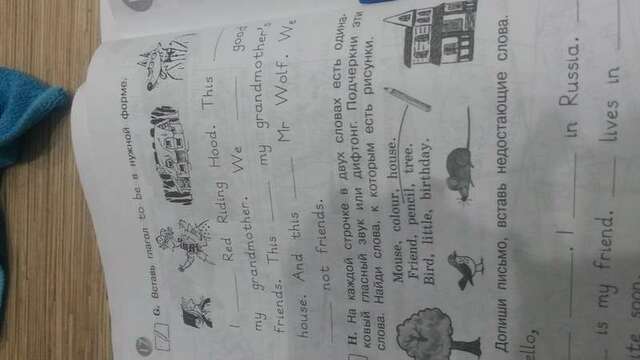 17
G. Вставь глагол to be в нужной форме.
I ____ Red Riding Hood. This ____
my grandmother. We ____ good
friends. This ____ my grandmother's
house. And this ____ Mr Wolf. We
____ not friends.
H. На каждой строчке в двух словах есть одина-
ковый гласный звук или дифтонг. Подчеркни эти
слова. Найди слова, к которым есть рисунки.
Mouse, colour, house.
Friend, pencil, tree.
Bird, little, birthday.
Допиши письмо, вставь недостающие слова.
ello,
____ . I ____ in Russia. __
__ is my friend. __ lives in __
ite soon.